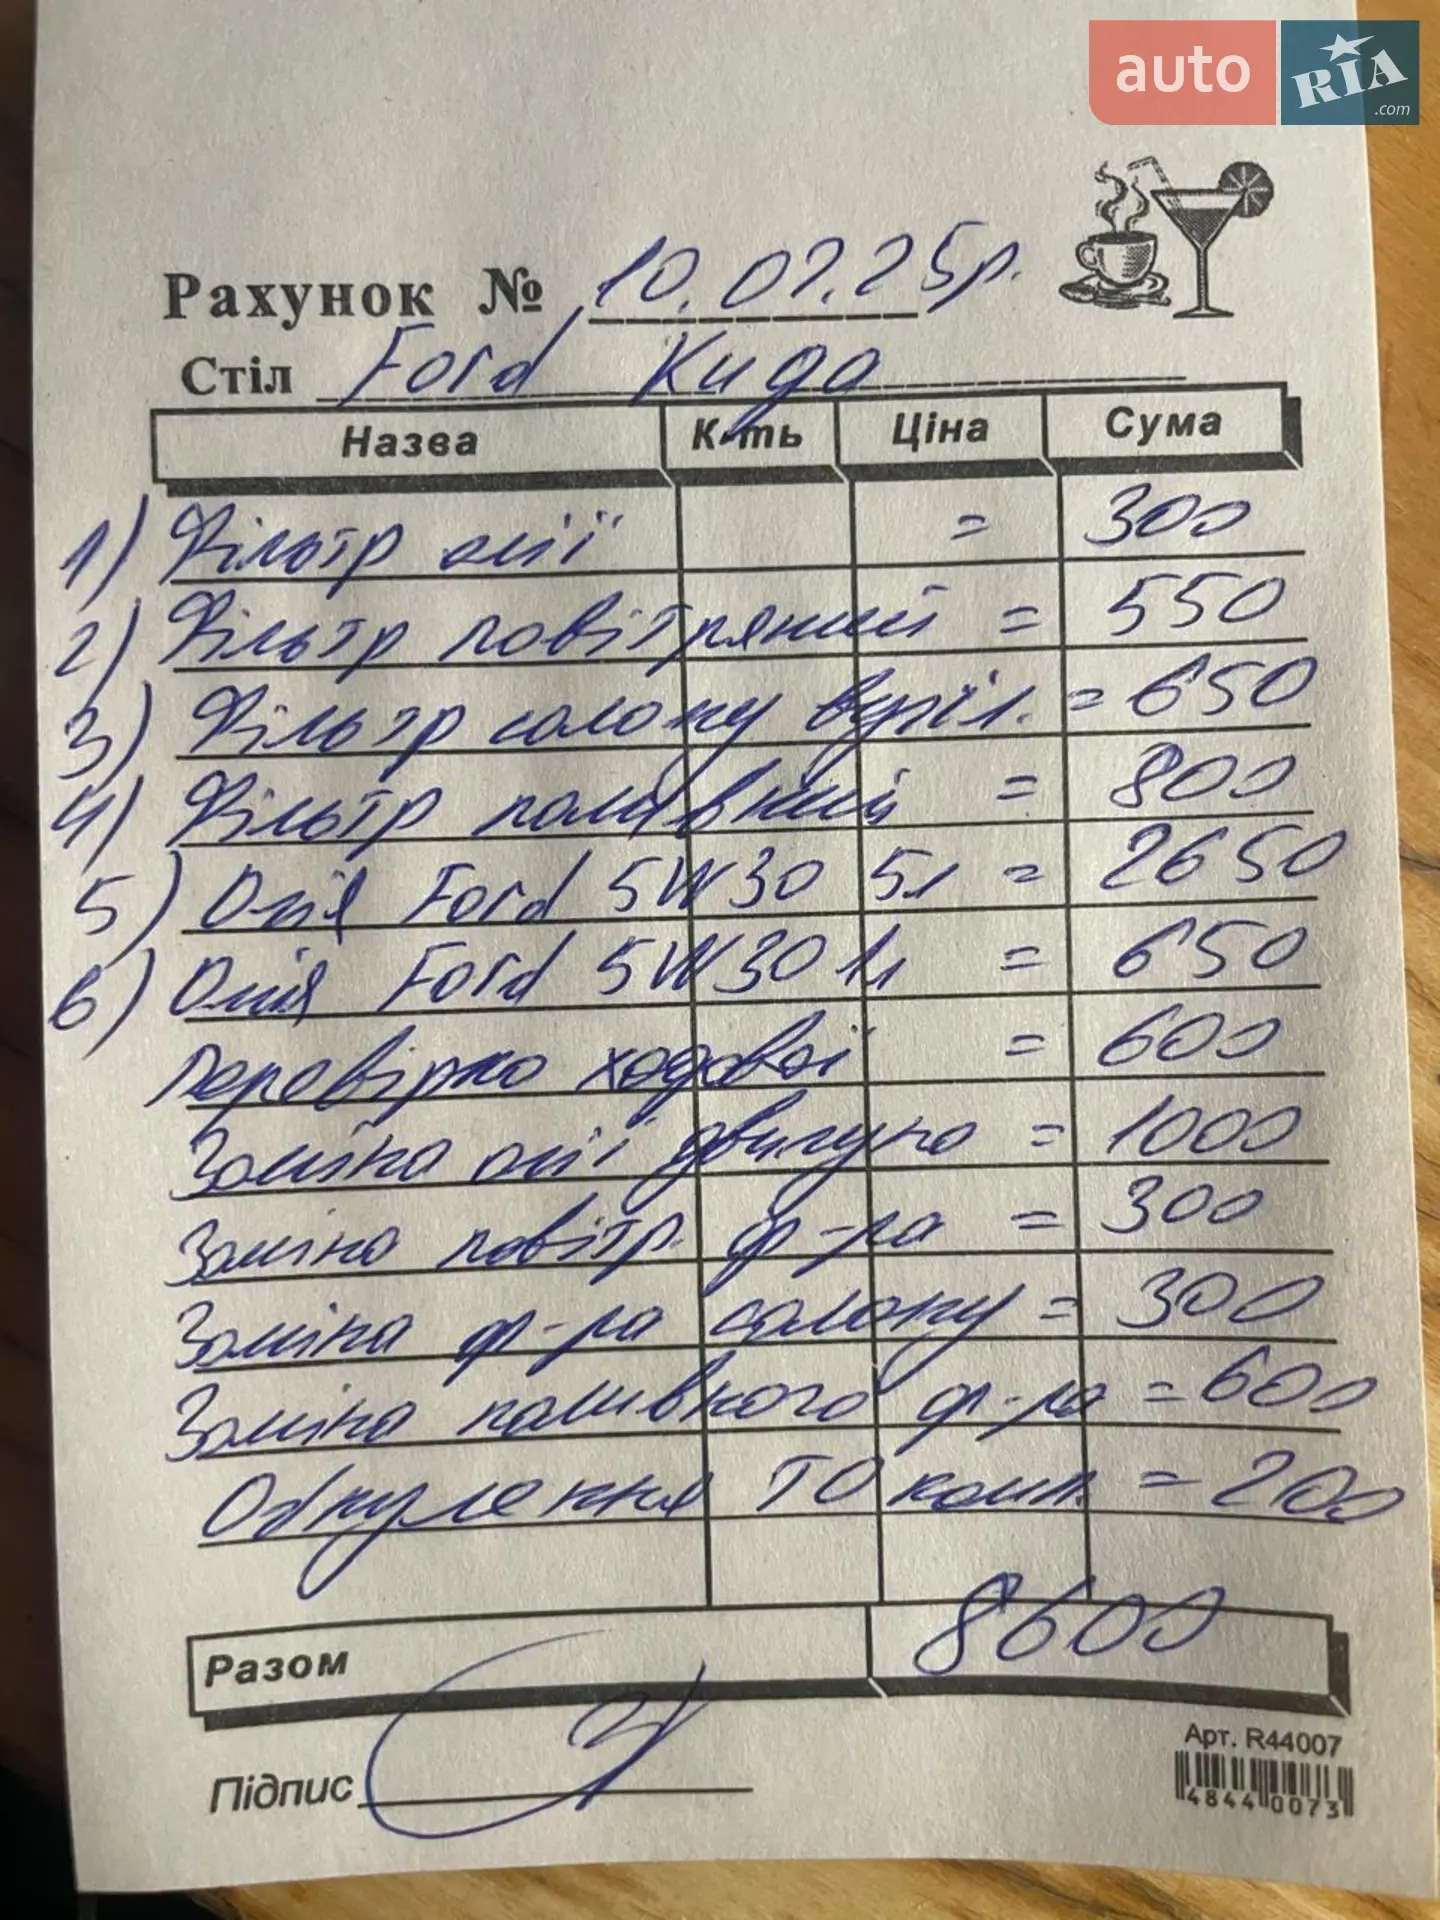 auto RIA .com
Рахунок № 10.02.25р.
Стіл Ford Куга
Назва К-ть Ціна Сума
1) Фільтр олії = 300
2) Фільтр повітряний = 550
3) Фільтр салону вугіл. = 650
4) Фільтр паливний = 800
5) Олія Ford 5W30 5л = 2650
6) Олія Ford 5W30 1л = 650
Перевірка ходової = 600
Заміна олії двигуна = 1000
Заміна повітр. ф-ра = 300
Заміна ф-ра салону = 300
Заміна паливного ф-ра = 600
Обнулення ТО комп. = 200
Разом 8600
Підпис
Арт. R44007
4844 0073